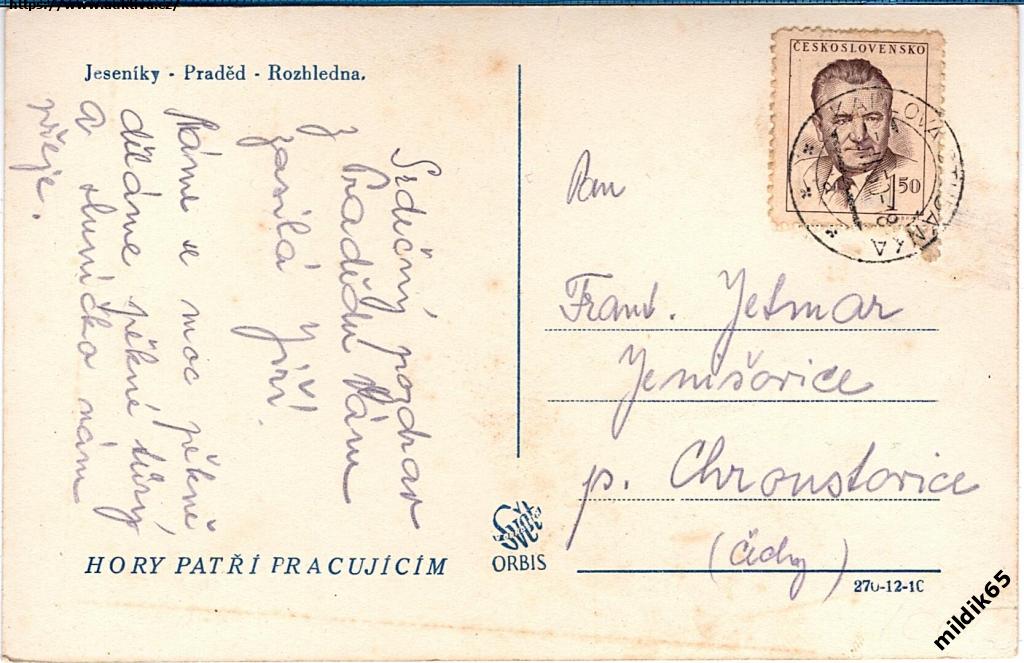 Jeseníky - Praděd - Rozhledna.
Srdečný pozdrav
z Pradědu Vám
zasílá Jiří.
Máme se moc pěkně
děláme pěkné túry
a sluníčko nám
přeje.
HORY PATŘÍ PRACUJÍCÍM
SVĚT
ORBIS
ČESKOSLOVENSKO
1 50
KARLOVA STUDÁNKA
Pan
Frant. Jetmar
Jenišovice
p. Chroustovice
(Čechy)
270-12-10
mildik65